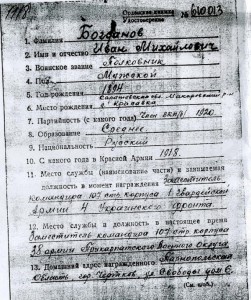 Орденская книжка
Удостоверение № 610013
1. Фамилия Богданов
2. Имя и отчество Иван Михайлович
3. Воинское звание Полковник
4. Пол Мужской
5. Год рождения 1894
6. Место рождения
7. Партийность (с какого года) Член ВКП(б) 1920
8. Образование Среднее
9. Национальность Русский
10. С какого года в Красной Армии 1918.
11. Место службы (наименование части) и занимаемая
должность в момент награждения Заместитель
командира 107 стр. корпуса 1 Гвардейской
Армии 4 Украинского Фронта.
12. Место службы и должность в настоящее время
Заместитель командира 107 стр корпуса
38 армии Прикарпатского Военного Округа
13. Домашний адрес награжденного Тарнопольская
Область гор. Чертков ул Свободы дом 6.
(См. на об.)